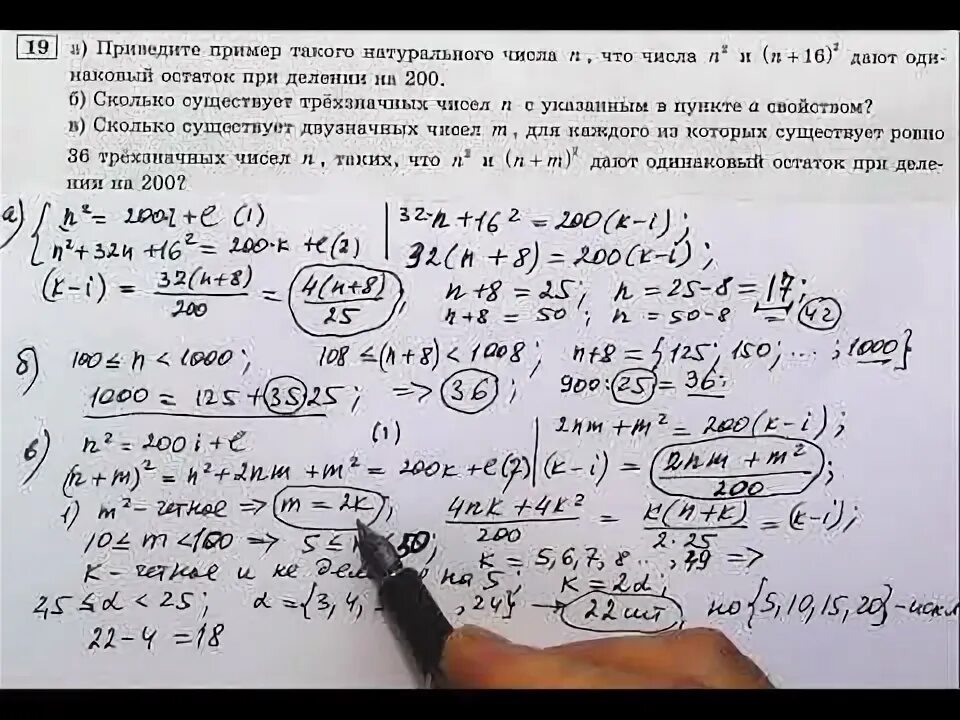 19 а) Приведите пример такого натурального числа n, что числа n² и (n + 16)² дают оди-
наковый остаток при делении на 200.
б) Сколько существует трёхзначных чисел n с указанным в пункте а свойством?
в) Сколько существует двузначных чисел m, для каждого из которых существует ровно
36 трёхзначных чисел n, таких, что n² и (n + m)² дают одинаковый остаток при деле-
нии на 200?
а) { n² = 200·i + ℓ (1) | 32·n + 16² = 200(k-i);
n² + 32n + 16² = 200·k + ℓ (2) | 32(n + 8) = 200(k-i);
(k-i) = 32(n+8)/200 = 4(n+8)/25; n+8 = 25; n = 25-8 = 17;
n+8 = 50; n = 50-8 = 42
б) 100 ≤ n < 1000; 108 ≤ (n+8) < 1008; n+8 = {125; 150; ...; 1000}
1000 = 125 + 35·25; => 36; 900:25 = 36;
в) n² = 200i + ℓ (1) | 2nm + m² = 200(k-i);
(n+m)² = n² + 2nm + m² = 200k + ℓ (2) | (k-i) = 2nm + m²/200;
1) m² - четное => m = 2k, 4nk + 4k²/200 = k(n+k)/2·25 = (k-i);
10 ≤ m < 100 => 5 ≤ 50; k = 5,6,7,8...,49 =>
k - четное и не на 5; k = 2d;
2,5 ≤ d < 25; d = {3, 4, , 24} → 22 шт, но {5,10,15,20} - искл
22 - 4 = 18